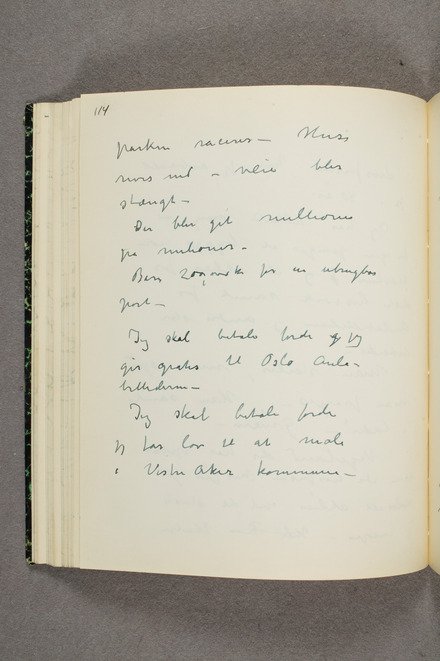 114
parken raseres – Huse
rives ned – veie blir
stængt –
Der blir git millioner
på millioner –
Bare 200,000 kr for en ubrugbar
port –
Jeg skal betale fordi jeg
gir gratis til Oslo Aula-
billederne –
Jeg skal betale fordi
jeg far lov til at male
i Vestre Aker kommune –